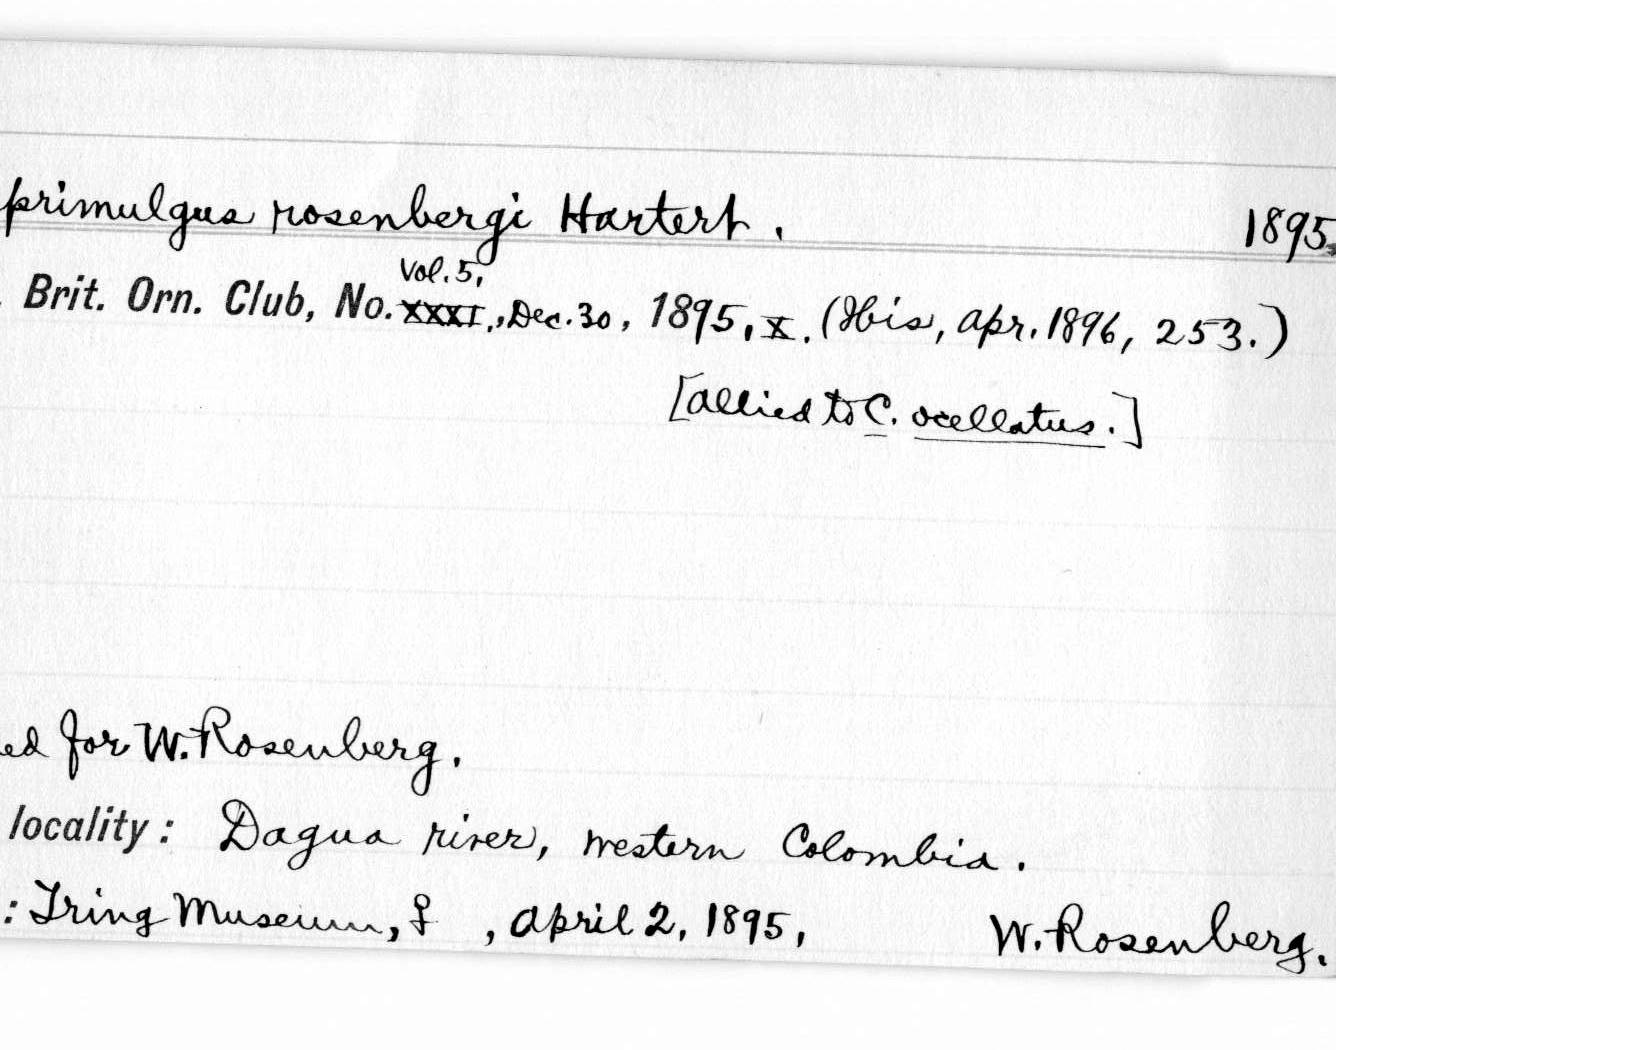 primulgus rosenbergi Hartert. 1895.
Vol. 5,
Brit. Orn. Club, No. XXXI., Dec. 30, 1895, X. (Ibis, Apr. 1896, 253.)
[Allied to C. ocellatus.]
ed for W. Rosenberg.
locality: Dagua river, western Colombia.
: Tring Museum, ♀, April 2, 1895, W. Rosenberg.